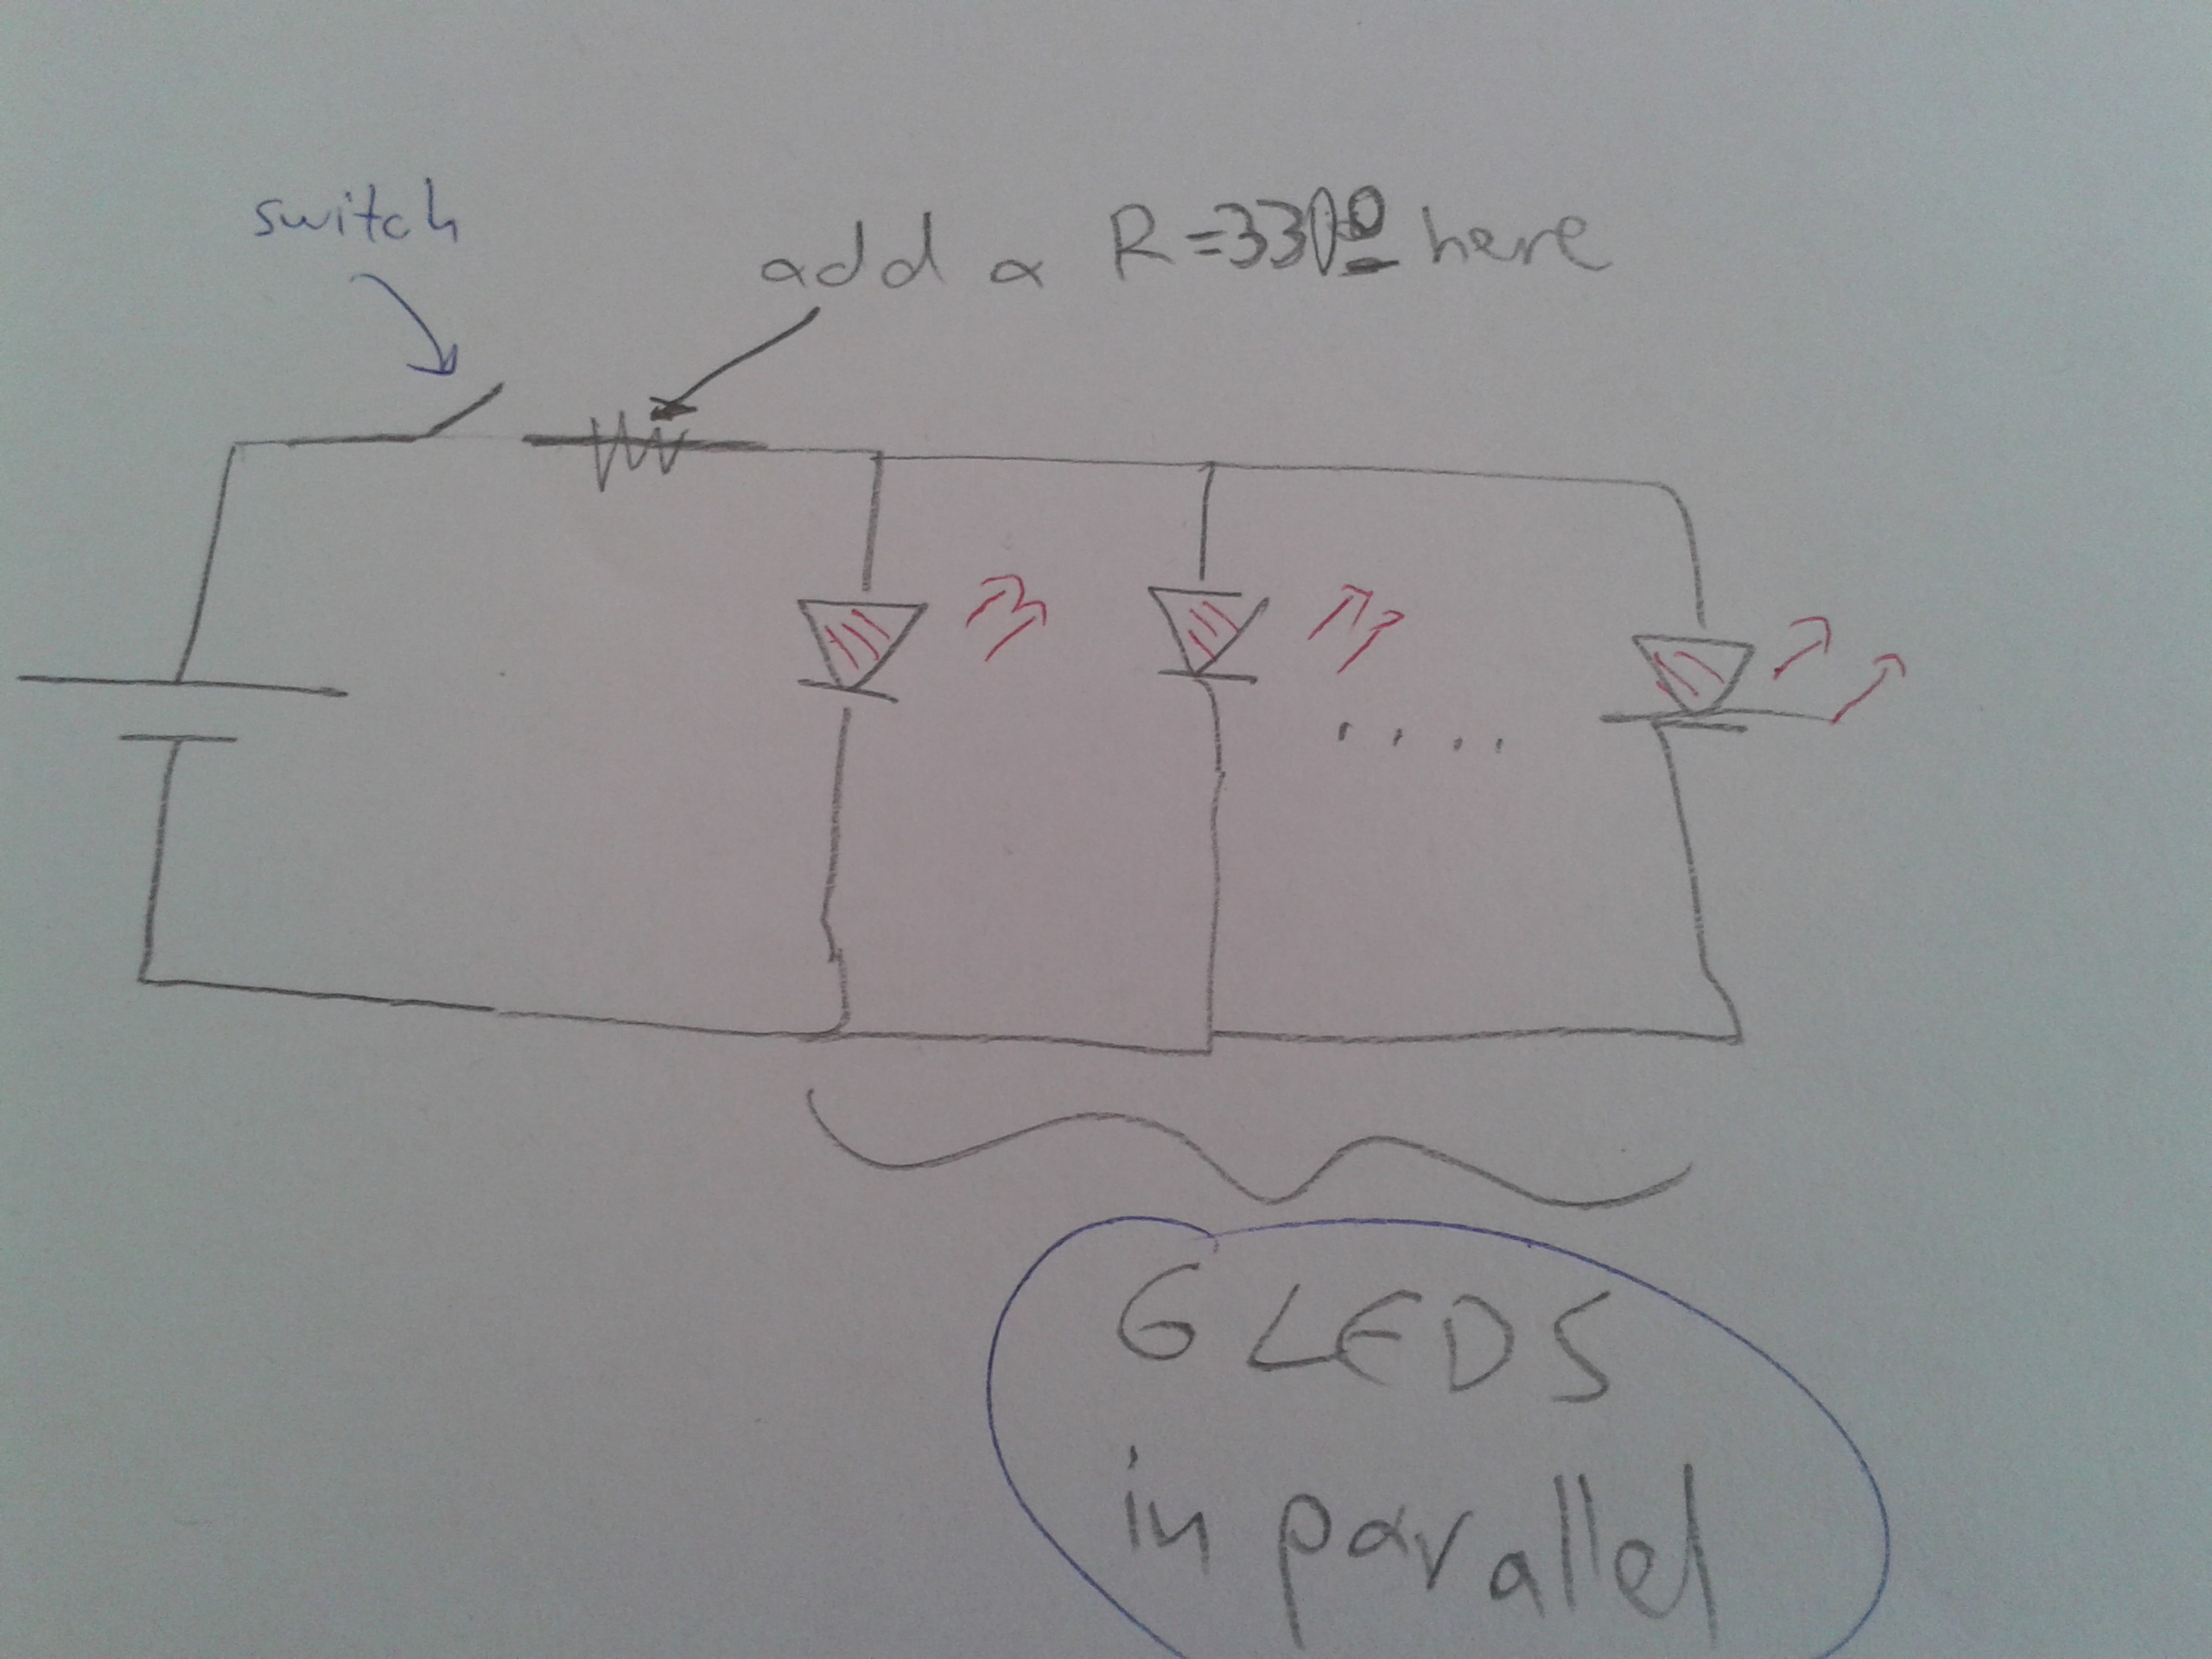 switch
add a R=330Ω here
6 LEDS
in parallel